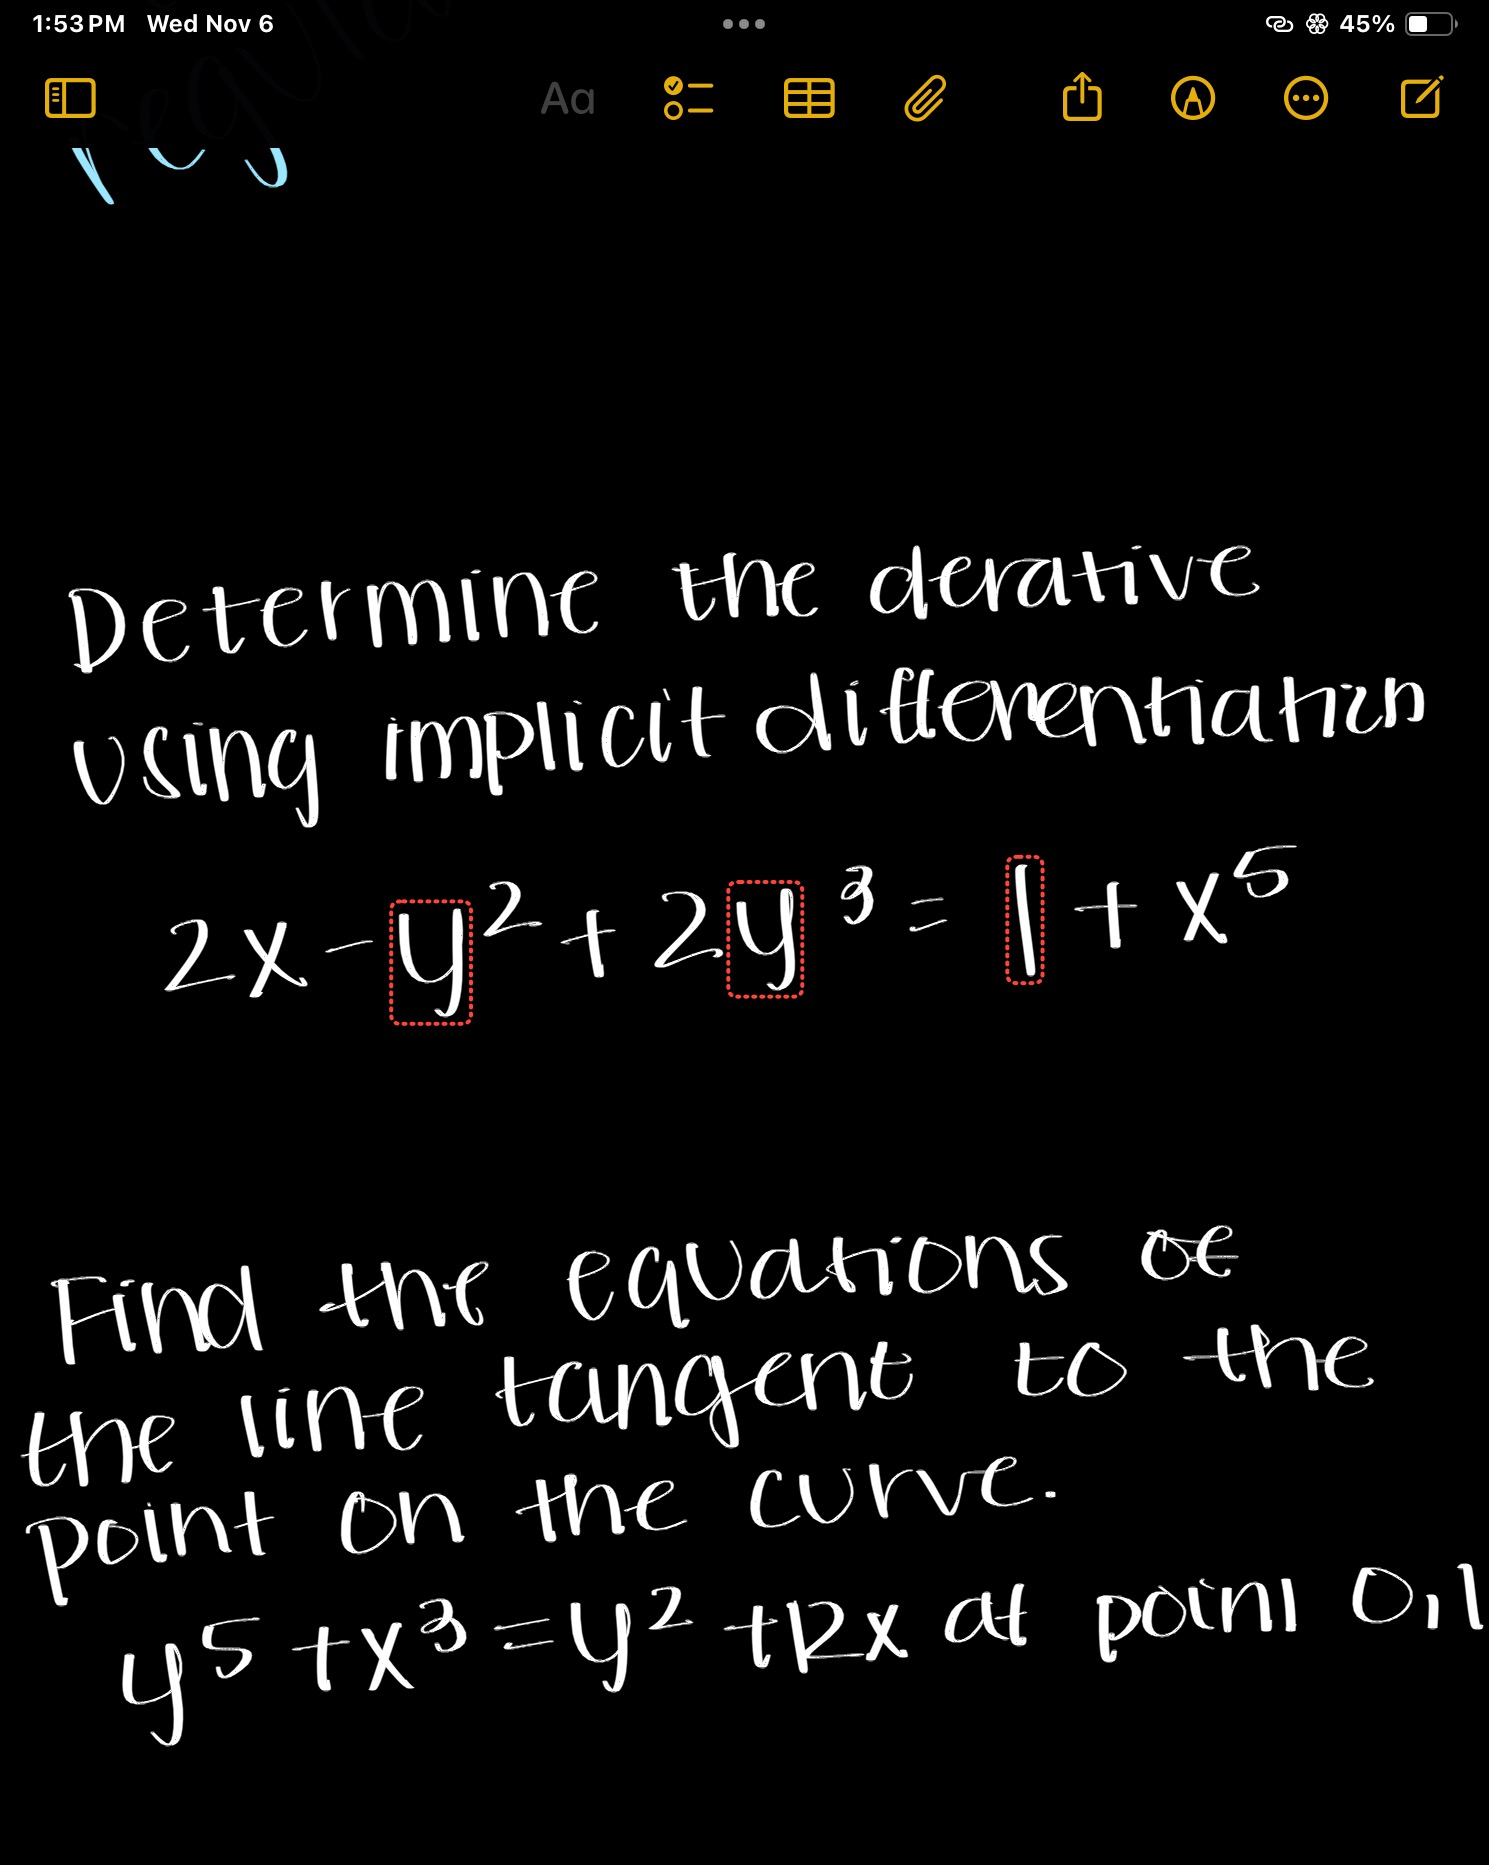 1:53 PM Wed Nov 6
45%
Aa
Determine the derative
using implicit differentiation
2x - y² + 2y³ = 1 + x⁵
Find the equations of
the line tangent to the
point on the curve.
y⁵ + x³ = y² + 12x at point 0,1